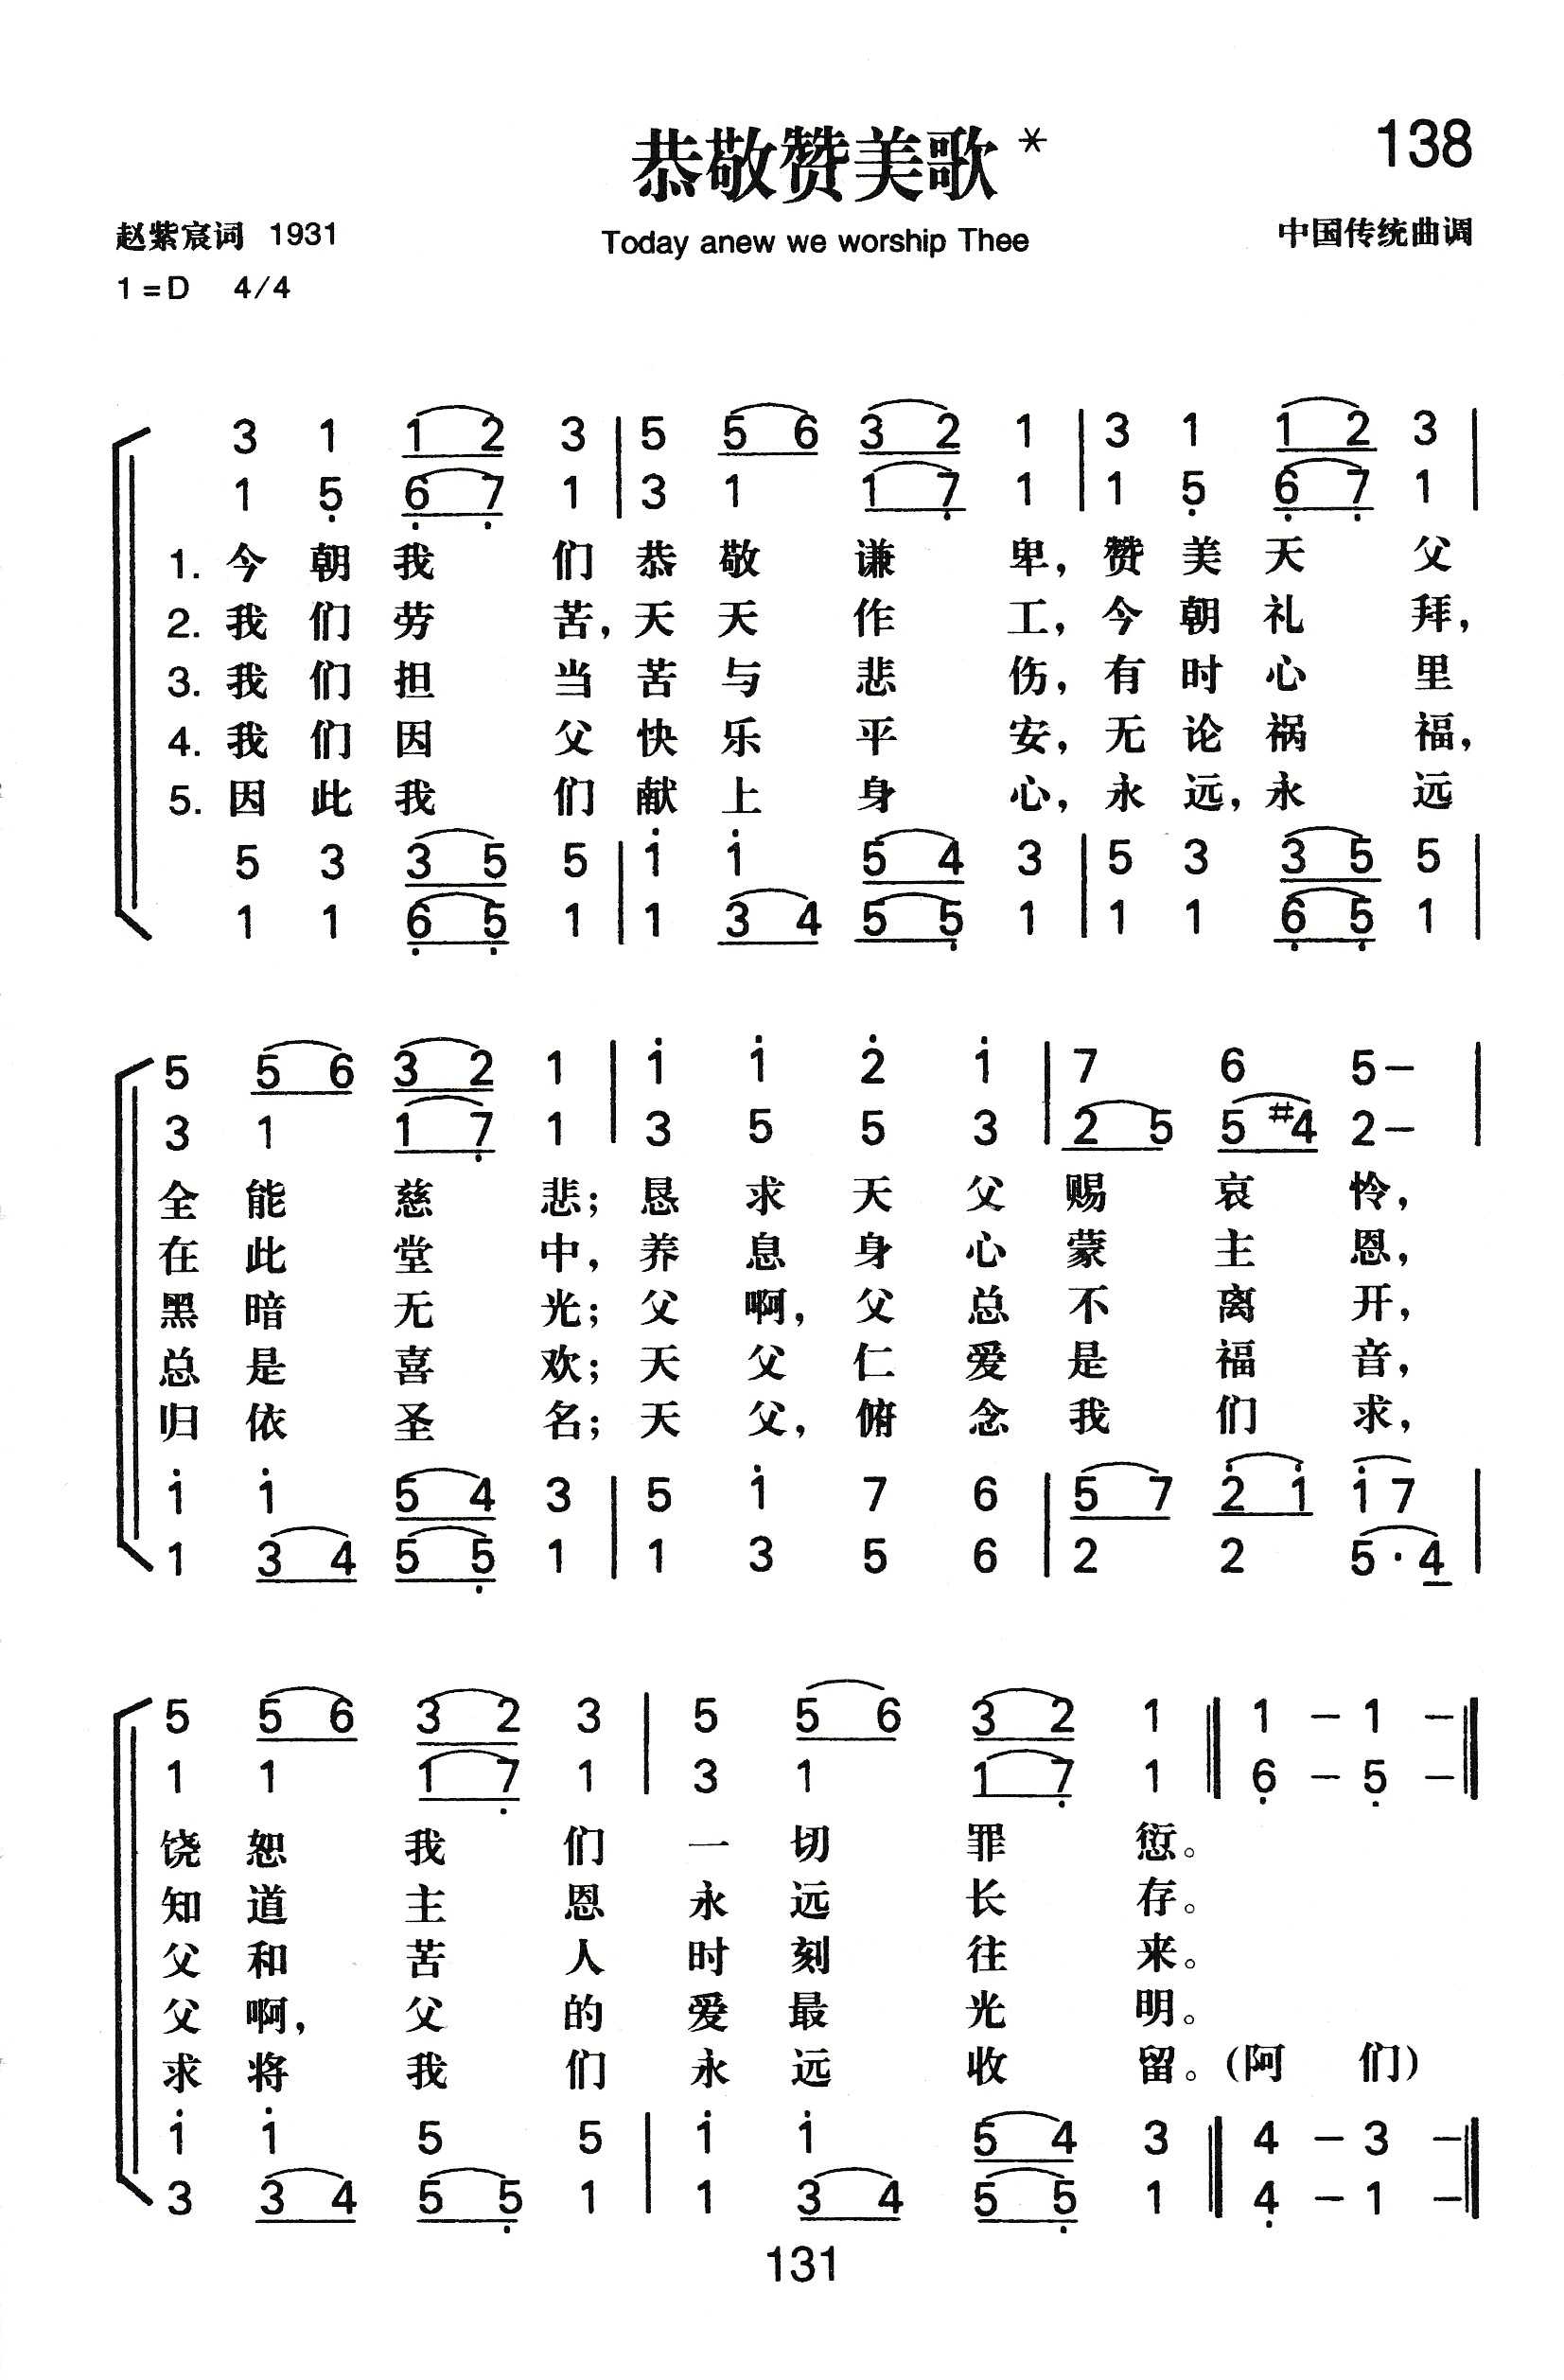 恭敬赞美歌* 138
赵紫宸词 1931 Today anew we worship Thee 中国传统曲调
1=D 4/4
3 1 1 2 3 | 5 5 6 3 2 1 | 3 1 1 2 3 |
1 5̣ 6̣ 7̣ 1 | 3 1 1 7̣ 1 | 1 5̣ 6̣ 7̣ 1 |
1. 今朝我们恭敬谦卑，赞美天父
2. 我们劳苦，天天作工，今朝礼拜，
3. 我们担当苦与悲伤，有时心里
4. 我们因父快乐平安，无论祸福，
5. 因此我们献上身心，永远，永远
5 3 3 5 5 | 1̇ 1̇ 5 4 3 | 5 3 3 5 5 |
1 1 6̣ 5̣ 1 | 1 3 4 5 5̣ 1 | 1 1 6̣ 5̣ 1 |
5 5 6 3 2 1 | 1̇ 1̇ 2̇ 1̇ | 7 6 5– |
3 1 1 7̣ 1 | 3 5 5 3 | 2 5 5 #4 2– |
全能慈悲；恳求天父赐哀怜，
在此堂中，养息身心蒙主恩，
黑暗无光；父啊，父总不离开，
总是喜欢；天父仁爱是福音，
归依圣名；天父，俯念我们求，
1̇ 1̇ 5 4 3 | 5 1̇ 7 6 | 5 7 2̇ 1̇ 1̇ 7 |
1 3 4 5 5̣ 1 | 1 3 5 6 | 2 2 5·4 |
5 5 6 3 2 3 | 5 5 6 3 2 1 ‖ 1 – 1 – ‖
1 1 1 7̣ 1 | 3 1 1 7̣ 1 ‖ 6̣ – 5̣ – ‖
饶恕我们一切罪愆。
知道主恩永远长存。
父和苦人时刻往来。
父啊，父的爱最光明。
求将我们永远收留。(阿们)
1̇ 1̇ 5 5 | 1̇ 1̇ 5 4 3 ‖ 4 – 3 – ‖
3 3 4 5 5̣ 1 | 1 3 4 5 5̣ 1 ‖ 4̣ – 1 – ‖
131